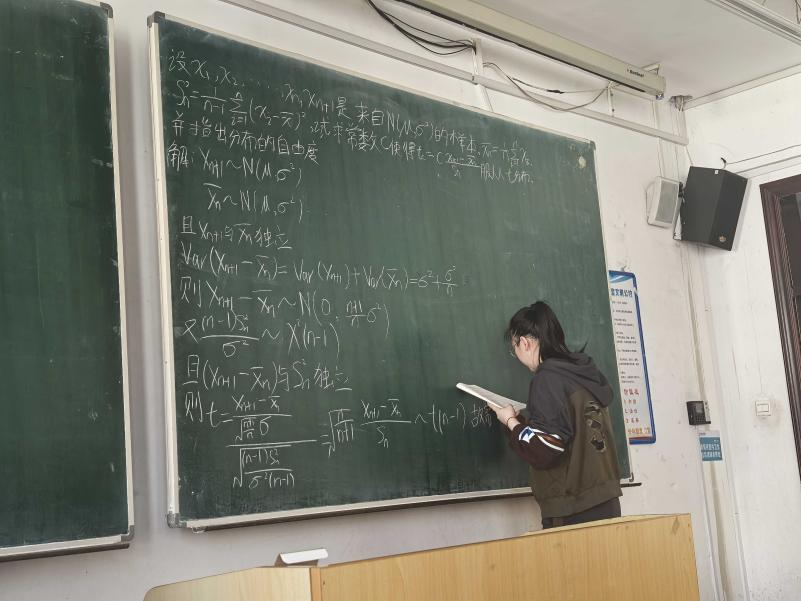 设 x₁, x₂, ……, xₙ, xₙ₊₁是 来自N(μ,σ²)的样本, x̄ₙ = 1/n Σᵢ₌₁ⁿ xᵢ
Sₙ² = 1/(n-1) Σᵢ₌₁ⁿ (xᵢ - x̄)², 试求常数C使得t = C (xₙ₊₁ - x̄ₙ)/Sₙ 服从t分布,
并指出分布的自由度
解: Xₙ₊₁ ~ N(μ, σ²)
X̄ₙ ~ N(μ, σ²)
且Xₙ₊₁与X̄ₙ独立
Var(Xₙ₊₁ - X̄ₙ) = Var(Xₙ₊₁) + Var(X̄ₙ) = σ² + σ²/n
则 Xₙ₊₁ - X̄ₙ ~ N(0, (n+1)/n σ²)
又 (n-1)Sₙ²/σ² ~ χ²(n-1)
且(Xₙ₊₁ - X̄ₙ)与Sₙ²独立
则 t = ((Xₙ₊₁ - X̄ₙ)/(√ σ)) / √((n-1)Sₙ²/(σ²(n-1))) = √(n/(n+1)) (Xₙ₊₁ - X̄ₙ)/Sₙ ~ t(n-1) 故